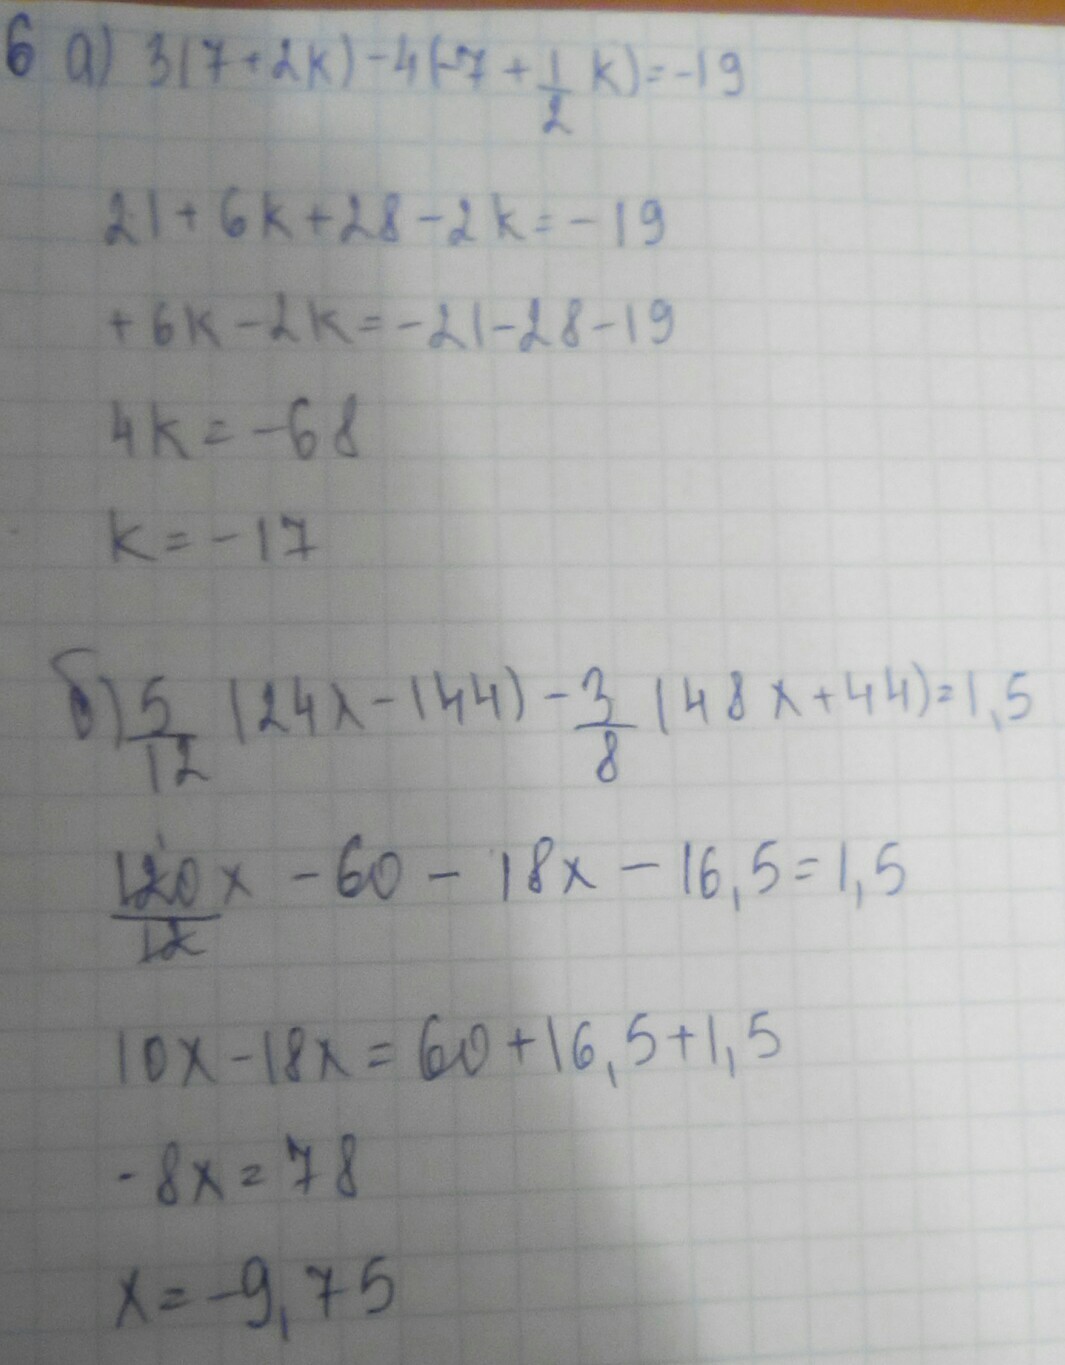 6 а) 3(7+2k)-4(-7+1/2 k)=-19
21+6k+28-2k=-19
+6k-2k=-21-28-19
4k=-68
k=-17
б) 5/12 (24x-144)-3/8 (48x+44)=1,5
120/12 x-60-18x-16,5=1,5
10x-18x=60+16,5+1,5
-8x=78
x=-9,75